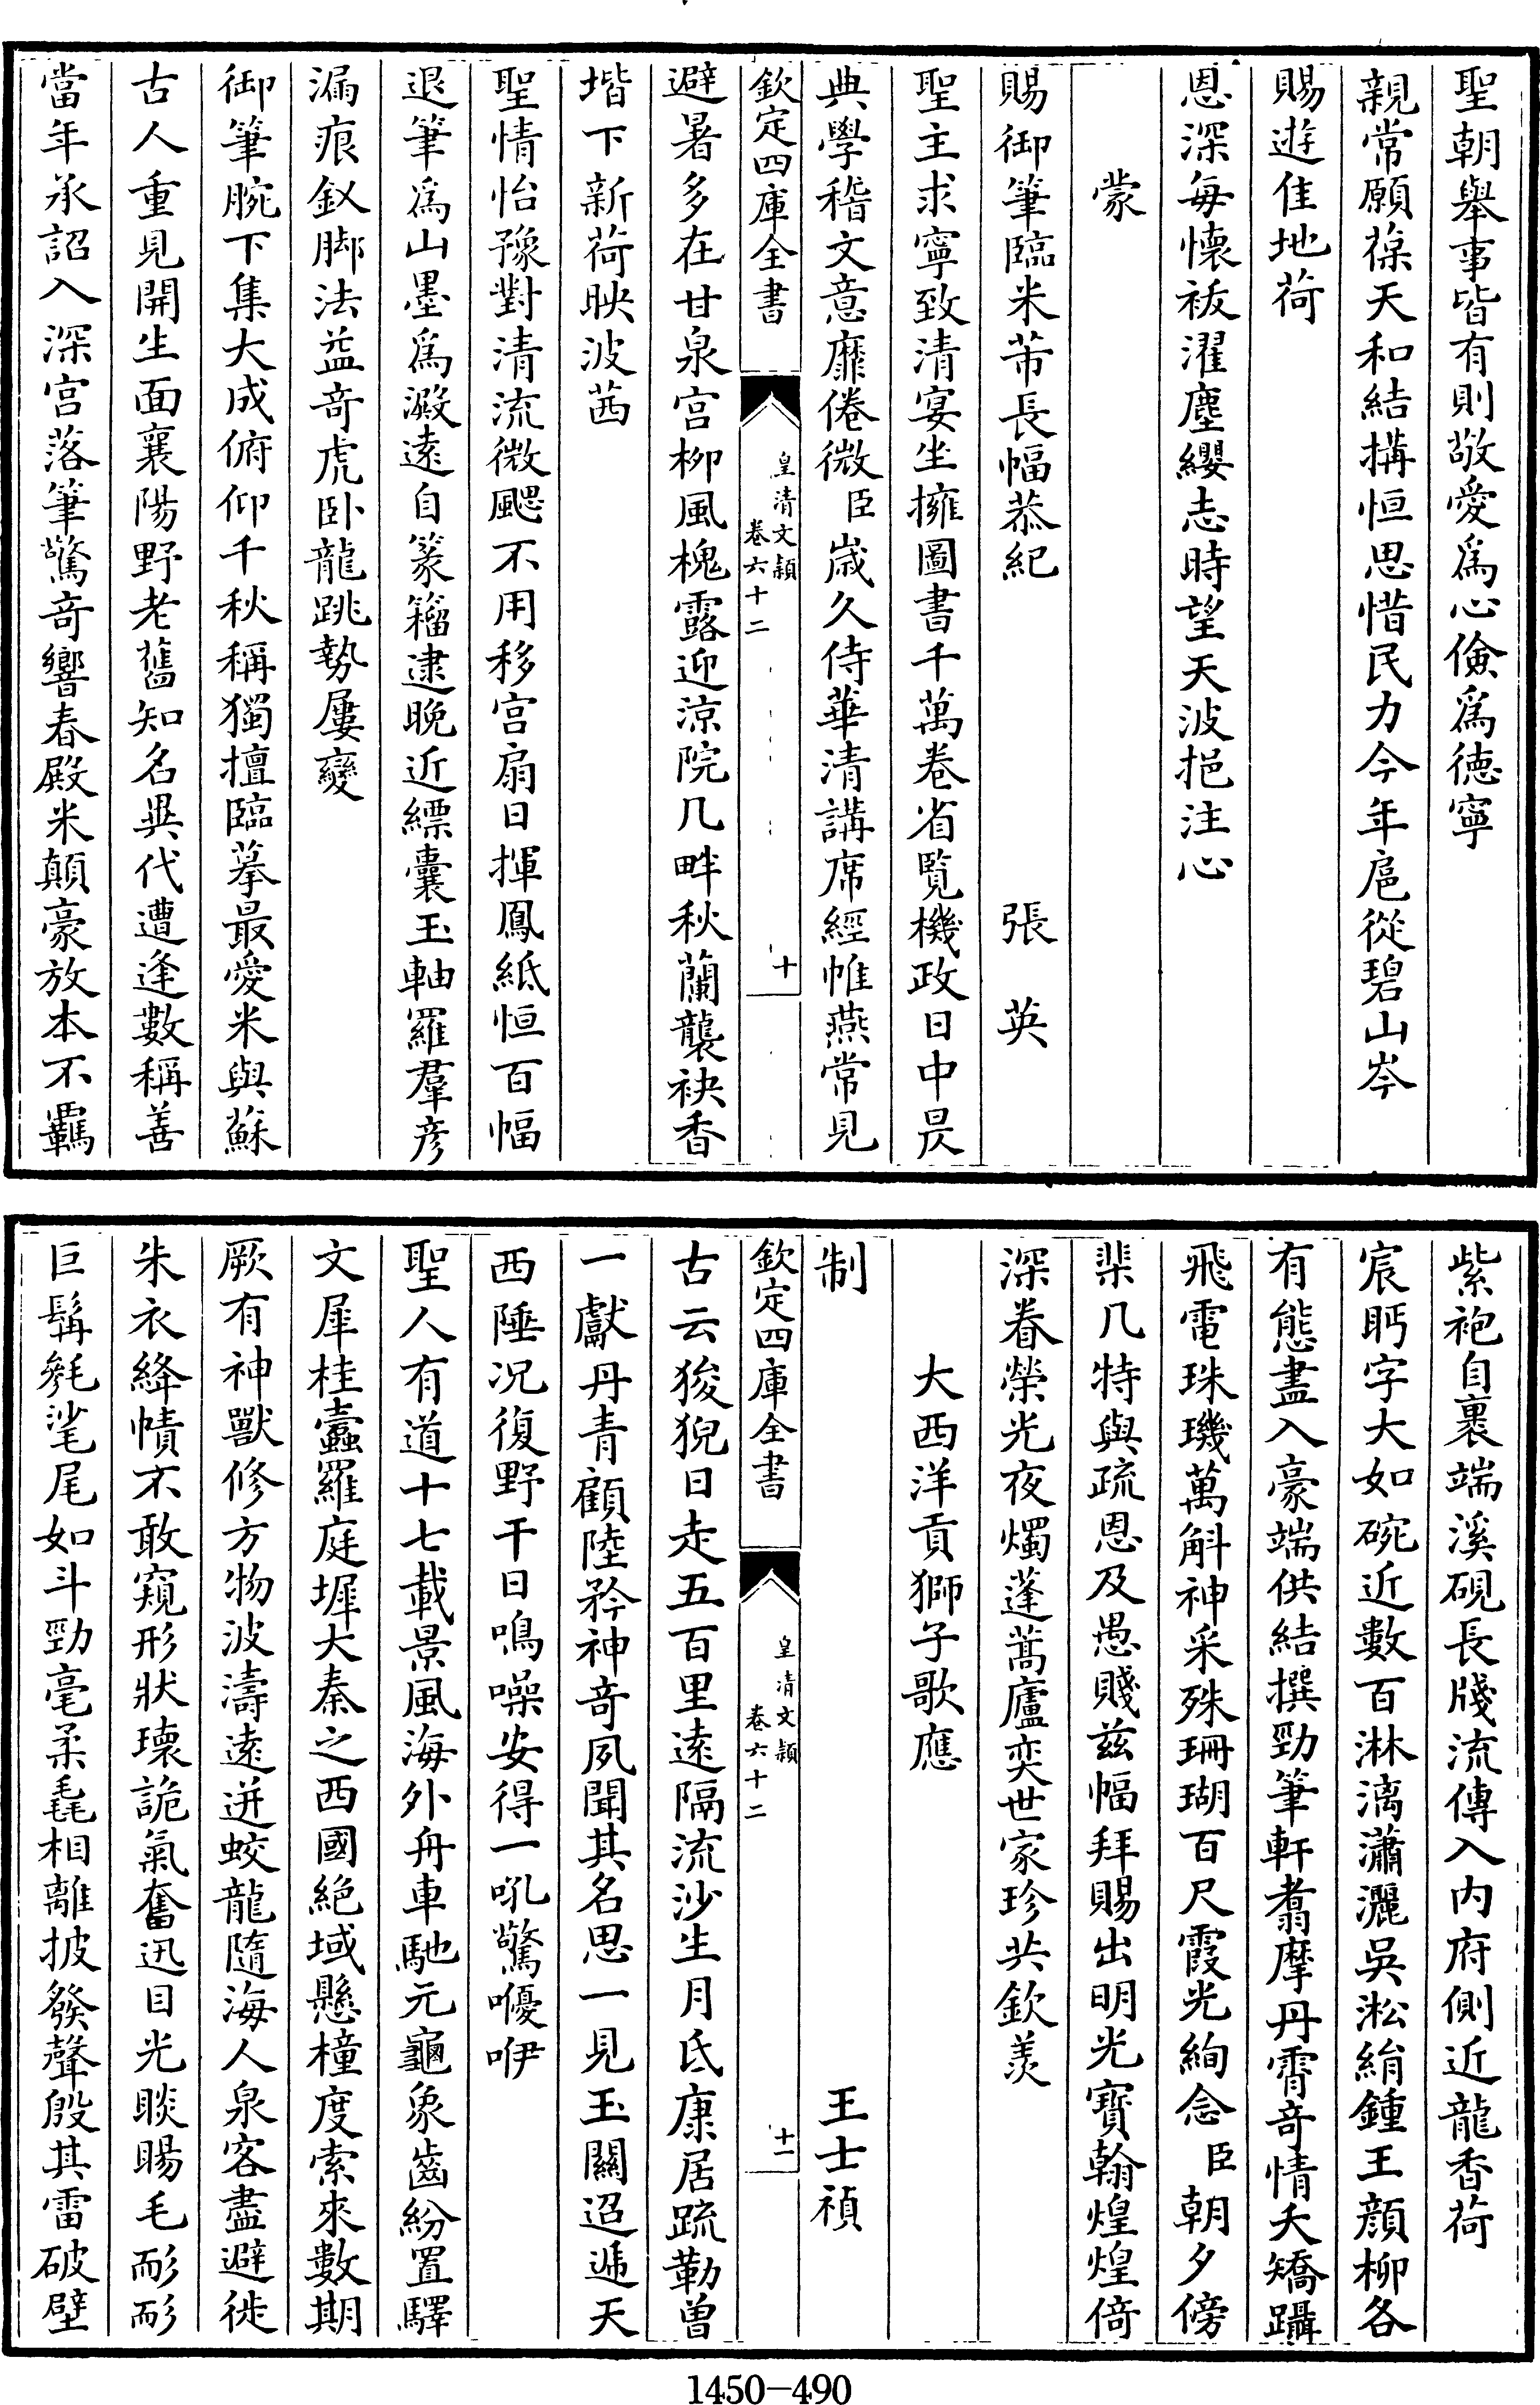 聖朝舉事皆有則敬愛為心儉為德寧
親常願葆天和結搆恒思惜民力今年扈從碧山岑
賜遊佳地荷
恩深每懷祓濯塵纓志時望天波挹注心
蒙
賜御筆臨米芾長幅恭紀 張英
聖主求寧致清宴坐擁圖書千萬卷省覽機政日中昃
典學稽文意靡倦微臣歲久侍華清講席經帷燕常見
欽定四庫全書 皇清文穎 卷六十二 十
避暑多在甘泉宮柳風槐露迎涼院几畔秋蘭襲袂香
堦下新荷映波茜
聖情怡豫對清流微颸不用移宮扇日揮鳳紙恒百幅
退筆為山墨為澱遠自篆籀逮晚近縹囊玉軸羅羣彥
漏痕釵脚法益奇虎卧龍跳勢屢變
御筆腕下集大成俯仰千秋稱獨擅臨摹最愛米與蘇
古人重見開生面襄陽野老舊知名異代遭逢數稱善
當年承詔入深宮落筆驚奇響春殿米顛豪放本不羈
紫袍自裹端溪硯長牋流傳入內府側近龍香荷
宸眄字大如碗近數百淋漓瀟灑吳淞絹鍾王顏柳各
有態盡入豪端供結撰勁筆軒翥摩丹霄奇情夭矯躡
飛電珠璣萬斛神采殊珊瑚百尺霞光絢念臣朝夕傍
棐几特與疏恩及愚賤兹幅拜賜出明光寶翰煌煌倚
深眷榮光夜燭蓬蒿廬奕世家珍共欽羨
大西洋貢獅子歌應
制 王士禎
欽定四庫全書 皇清文穎 卷六十二 十一
古云狻猊日走五百里遠隔流沙生月氏康居疏勒曾
一獻丹青顧陸矜神奇夙聞其名思一見玉關迢遞天
西陲况復野干日鳴噪安得一吼驚嚘咿
聖人有道十七載景風海外舟車馳元龜象齒紛置驛
文犀桂蠹羅庭墀大秦之西國絕域懸橦度索來數期
厥有神獸修方物波濤遠迸蛟龍隨海人泉客盡避徙
朱衣絳幘不敢窺形狀瓌詭氣奮迅目光睒睗毛耏耏
巨髯毿毿尾如斗勁毫柔毳相離披發聲殷其雷破壁
1450-490